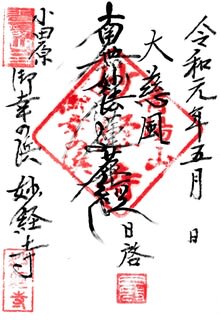 令和元年五月 日
大慈風
南無妙法蓮華経
日啓
小田原
御幸の浜 妙経寺